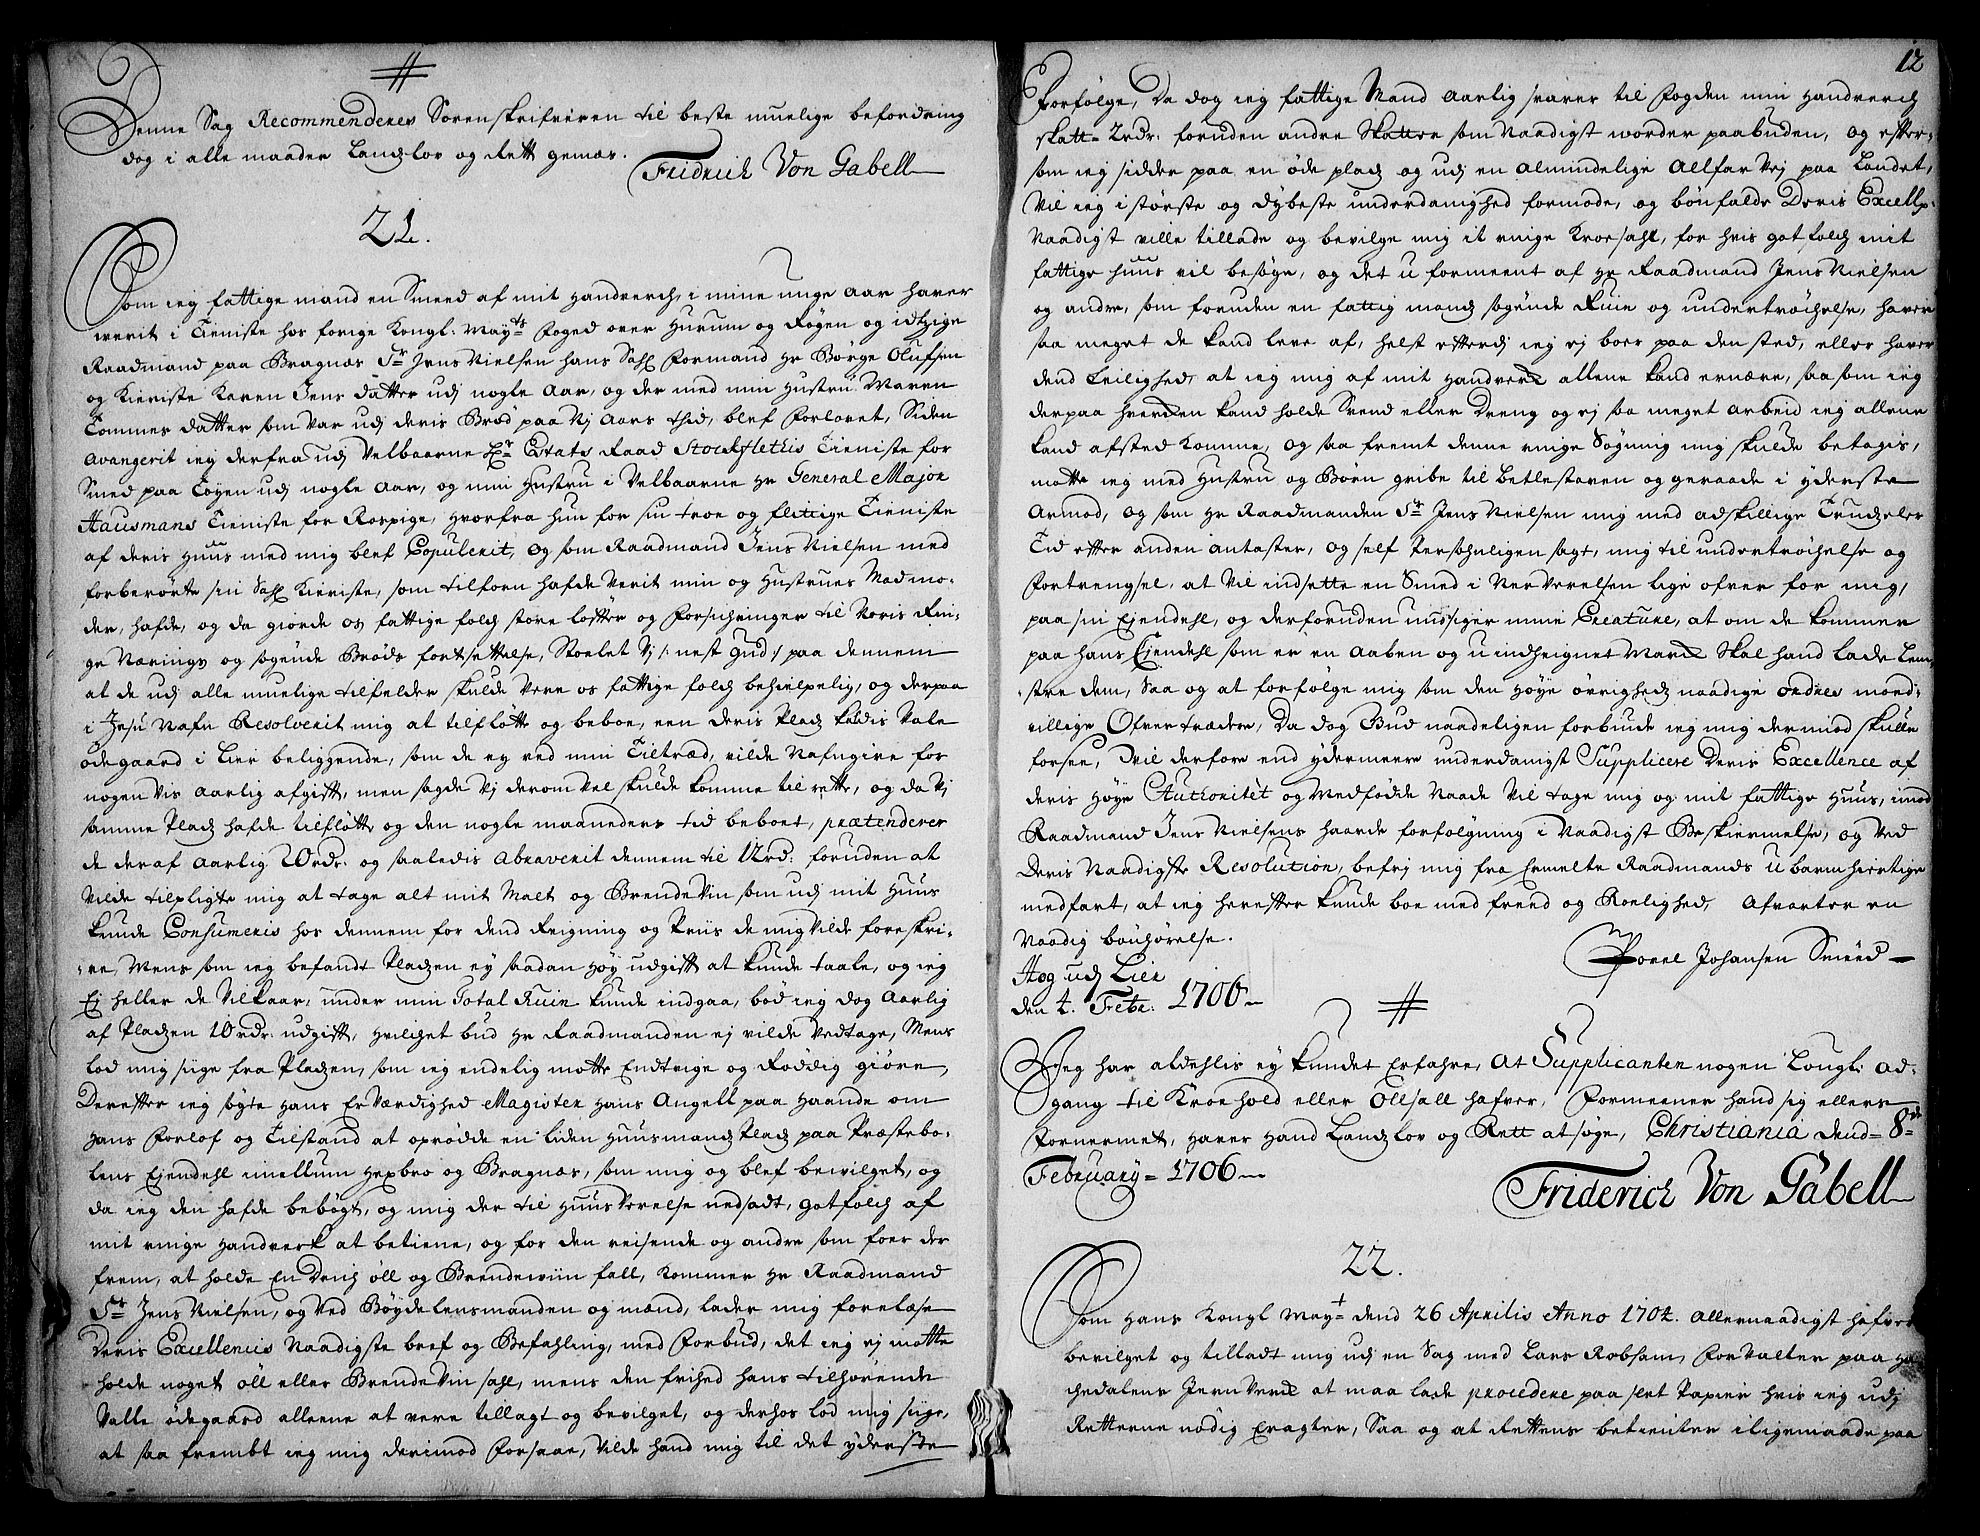 #
Denne Sag Recommenderes Sorenskrifveren til beste muelige befordring
dog i alle maader Landzlov og Rett gemæs.
Fridrich Von Gabell
21.
Som ieg fattige mand en Smeed af mit Handverch, i mine unge Aar haver
werit i Tieniste hos forige Kongl: Mayts foged over Hurum og Røgen og itzige
Raadmand paa Bragnæs Sr Jens Nielsen hans Sahl formand Hr Børge Olufsen
og Kieriste Karen Jens datter udj nogle Aar, og der med min Hustru Maren
Tommes datter som var udj deris Brød paa Vj Aars thid, blef forlovet, Siden
Avangerit ieg derfra udj Velbaarne Hr Etats Raad Stockflethis Tieniste for
Smed paa Tøyen udj nogle Aar, og min Hustru i Velbaarne Hr General Major
Hausmans Tieniste for Kospige, hvorfra hun for sin troe og flittige Tieniste
af deris Huus med mig blef Copulerit, og som Raadmand Jens Nielsen med
forberørte sin Sahl Kieriste, som tilforn hafde verit min og Hustrues Madmo-
der, hafde, og da giorde os fattige folch store løfter og forsichringer til voris Rin-
ge Nærings og søgende Brøds fortsettelse, Stoelet Vj /: nest Gud :/ paa dennem
at de udj alle muelige tilfelder skulde vere os fattige folch behielpelig, og derpaa
i Jesu Nafn Resolverit mig at tilfløtte og beboe, een deris Pladz kaldis Vale
ødegaard i Lier beliggende, som de ey ved min Tiltræd, vilde Nafngive for
nogen vis aarlig afgift, men sagde Vj derom vel skulde komme til rette, og da Vj
samme Pladz hafde tilfløtt og den nogle maaneders tid beboet, prætenderer
de deraf Aarlig 20 rdr. og saaledis Abraverit dennem til 12 rd: foruden at
vilde tilpligte mig at tage alt mit Malt og BrendeVin som udj mit Huus
kunde Consumeris hos dennem for dend Reigning og Priis de mig vilde foreskri-
ve, Mens som ieg befandt Pladzen ey saadan Høy udgift at kunde taale, og ieg
Ej heller de Vilkaar, under min Total Ruin kunde indgaa, bød ieg dog Aarlig
af Pladzen 10 rdr. udgift, Hvilchet bud Hr Raadmanden ej vilde Vedtage, Mens
lod mig siige fra Pladzen, som ieg endelig motte Endvige og Røddig giøre,
Derefter ieg søgte Hans ErVærdighed Magister Hans Angell paa Haande om
Hans forlof og Tilstand at oprødde en liden Huusmandz Pladz paa Præstebo-
lens Eiendehl imellum Hexbro og Bragnæs, som mig og blef bevilget, og
da ieg den hafde bebøgt, og mig der til Huus Verelse nedsadt, gotfolch af
mit ringe Handverk at betiene, og for den reisende og andre som foer der
frem, at holde En Drich øll og Brendeviin fall, Kommer Hr Raadmand
Sr Jens Nielsen, og ved Bøyde Lensmanden og mænd, lader mig forelæse
Deris Excellencis Naadigste bref og Befahling, med forbud, det ieg ej motte
holde noget øll eller BrendeVin sahl, mens den frihed hans tilhørende
Valle ødegaard alleene at vere tillagt og bevilget, og derhos lod mig siige,
at saa frembt ieg mig derimod forsaae, vilde hand mig til det yderste
12
forfølge, Da dog ieg fattige Mand Aarlig svarer til fogden min Handverch
skatt = 2 rdr. foruden andre Skatter som Naadigst worder paabuden, og efter-
som ieg sidder paa en øde pladz og udj en almindelige Allfar Vej paa Landet,
Vil ieg i største og dybeste underdanighed formode, og bønfalde Deris Excell:
Naadigst ville tillade og bevilge mig it ringe Kroe sahl, for hvis got folch mit
fattige huus vil besøge, og det u formeent af Hr Raadmand Jens Nielsen
og andre, som foruden en fattig mandz søgende Ruin og undertrøchelse, haver
saa meget de kand leve af, helst efterdj ieg ej boer paa den sted, eller haver
dend Leilighed, at ieg mig af mit Handverk allene kand ernære, saa som ieg
derpaa hverchen kand holde Svend eller Dreng og ej saa meget arbeid ieg allene
kand afsted komme, og saa fremt denne ringe Søgning mig skulde betagis,
motte ieg med Hustru og Børn gribe til Betlestaven og geraade i yderste
Armod, og som Hr Raadmanden Sr Jens Nielsen mig med adskillige Trudzeler
Tid efter anden antaster, og self Persohnligen sagt, mig til undertrøchelse og
fortrengsel, at vil indsette en Smed i Nerverelsen lige ofver for mig,
paa sin Eiendehl, og derforuden undsiger mine Creature, at om de kommer
paa hans Eiendehl som er en Aaben og u indheignet Mark Skal hand lade Lem-
stre dem, saa og at forfølge mig som den Høye øvrighedz naadige ordres mod-
villige Ofvertrædere, Da dog Gud naadeligen forbiude ieg mig dermod skulle
forsee, Vil derfore end ydermeere underdanigst Supplicere Deris Excellence af
deris Høye Authoritet og medfødde Naade vil tage mig og mit fattige Huus, imod
Raadmand Jens Nielsens haarde forfølgning i Naadigst Beskiermelse, og ved
Deris Naadigste Resolution, befrj mig fra Ermelte Raadmands u barmhiertige
medfart, at ieg herefter kunde boe med freed og Roelighed, Afvarter en
Naadig bønhørelse.
Povel Johansen Smeed
Hog udj Lier
den 4. Febr. 1706
#
Jeg har aldehlis ey kundet Erfahre, At Supplicanten nogen Lougl: Ad-
gang til Kroehold eller Ollsall hafver, Formeener hand sig ellers
fornermet, haver hand Landzlov og Rett at søge, Christiania dend = 8de
February = 1706
Friderich Von Gabell
22.
Som Hans Kongl Mayt dend 26 Aprilis Anno 1704. allernaadigst hafver
bevilget og tilladt mig udj en Sag med Lars Robsam, forvalter paa Ha
chedalens Jern Verck at maa lade procedere paa slet Papiir hvis ieg udj
Retterne nødig Eragter, Saa og at Rettens betienter iligemaade paa